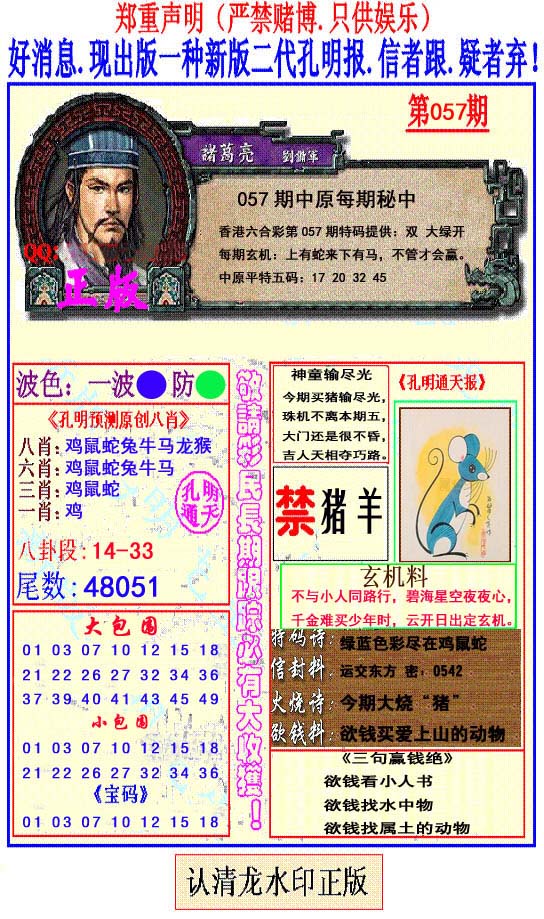 郑重声明（严禁赌博.只供娱乐）
好消息.现出版一种新版二代孔明报.信者跟.疑者弃！
第057期
諸葛亮 劉備軍
057 期中原每期秘中
香港六合彩第 057 期特码提供：双 大绿开
每期玄机：上有蛇来下有马，不管才会赢。
中原平特五码：17 20 32 45
QQ:
正版
波色：一波 防
《孔明预测原创八肖》
八肖：鸡鼠蛇兔牛马龙猴
六肖：鸡鼠蛇兔牛马
三肖：鸡鼠蛇
一肖：鸡
孔明通天
八卦段：14-33
尾数：48051
大包围
01 03 07 10 12 15 18
21 22 26 27 32 34 36
37 39 40 41 43 45 49
小包围
01 03 07 10 12 15 18
21 22 26 27 32 34 36
《宝码》
01 03 07 10 12 15 18
敬請彩民長期跟踪必有大收獲！
神童输尽光
今期买猪输尽光，
珠机不离本期五，
大门还是很不昏，
吉人天相夺巧路。
《孔明通天报》
禁猪羊
玄机料
不与小人同路行，碧海星空夜夜心，
千金难买少年时，云开日出定玄机。
特码诗：绿蓝色彩尽在鸡鼠蛇
信封料：运交东方 密：0542
火烧诗：今期大烧“猪”
欲钱料：欲钱买爱上山的动物
《三句赢钱绝》
欲钱看小人书
欲钱找水中物
欲钱找属土的动物
认清龙水印正版